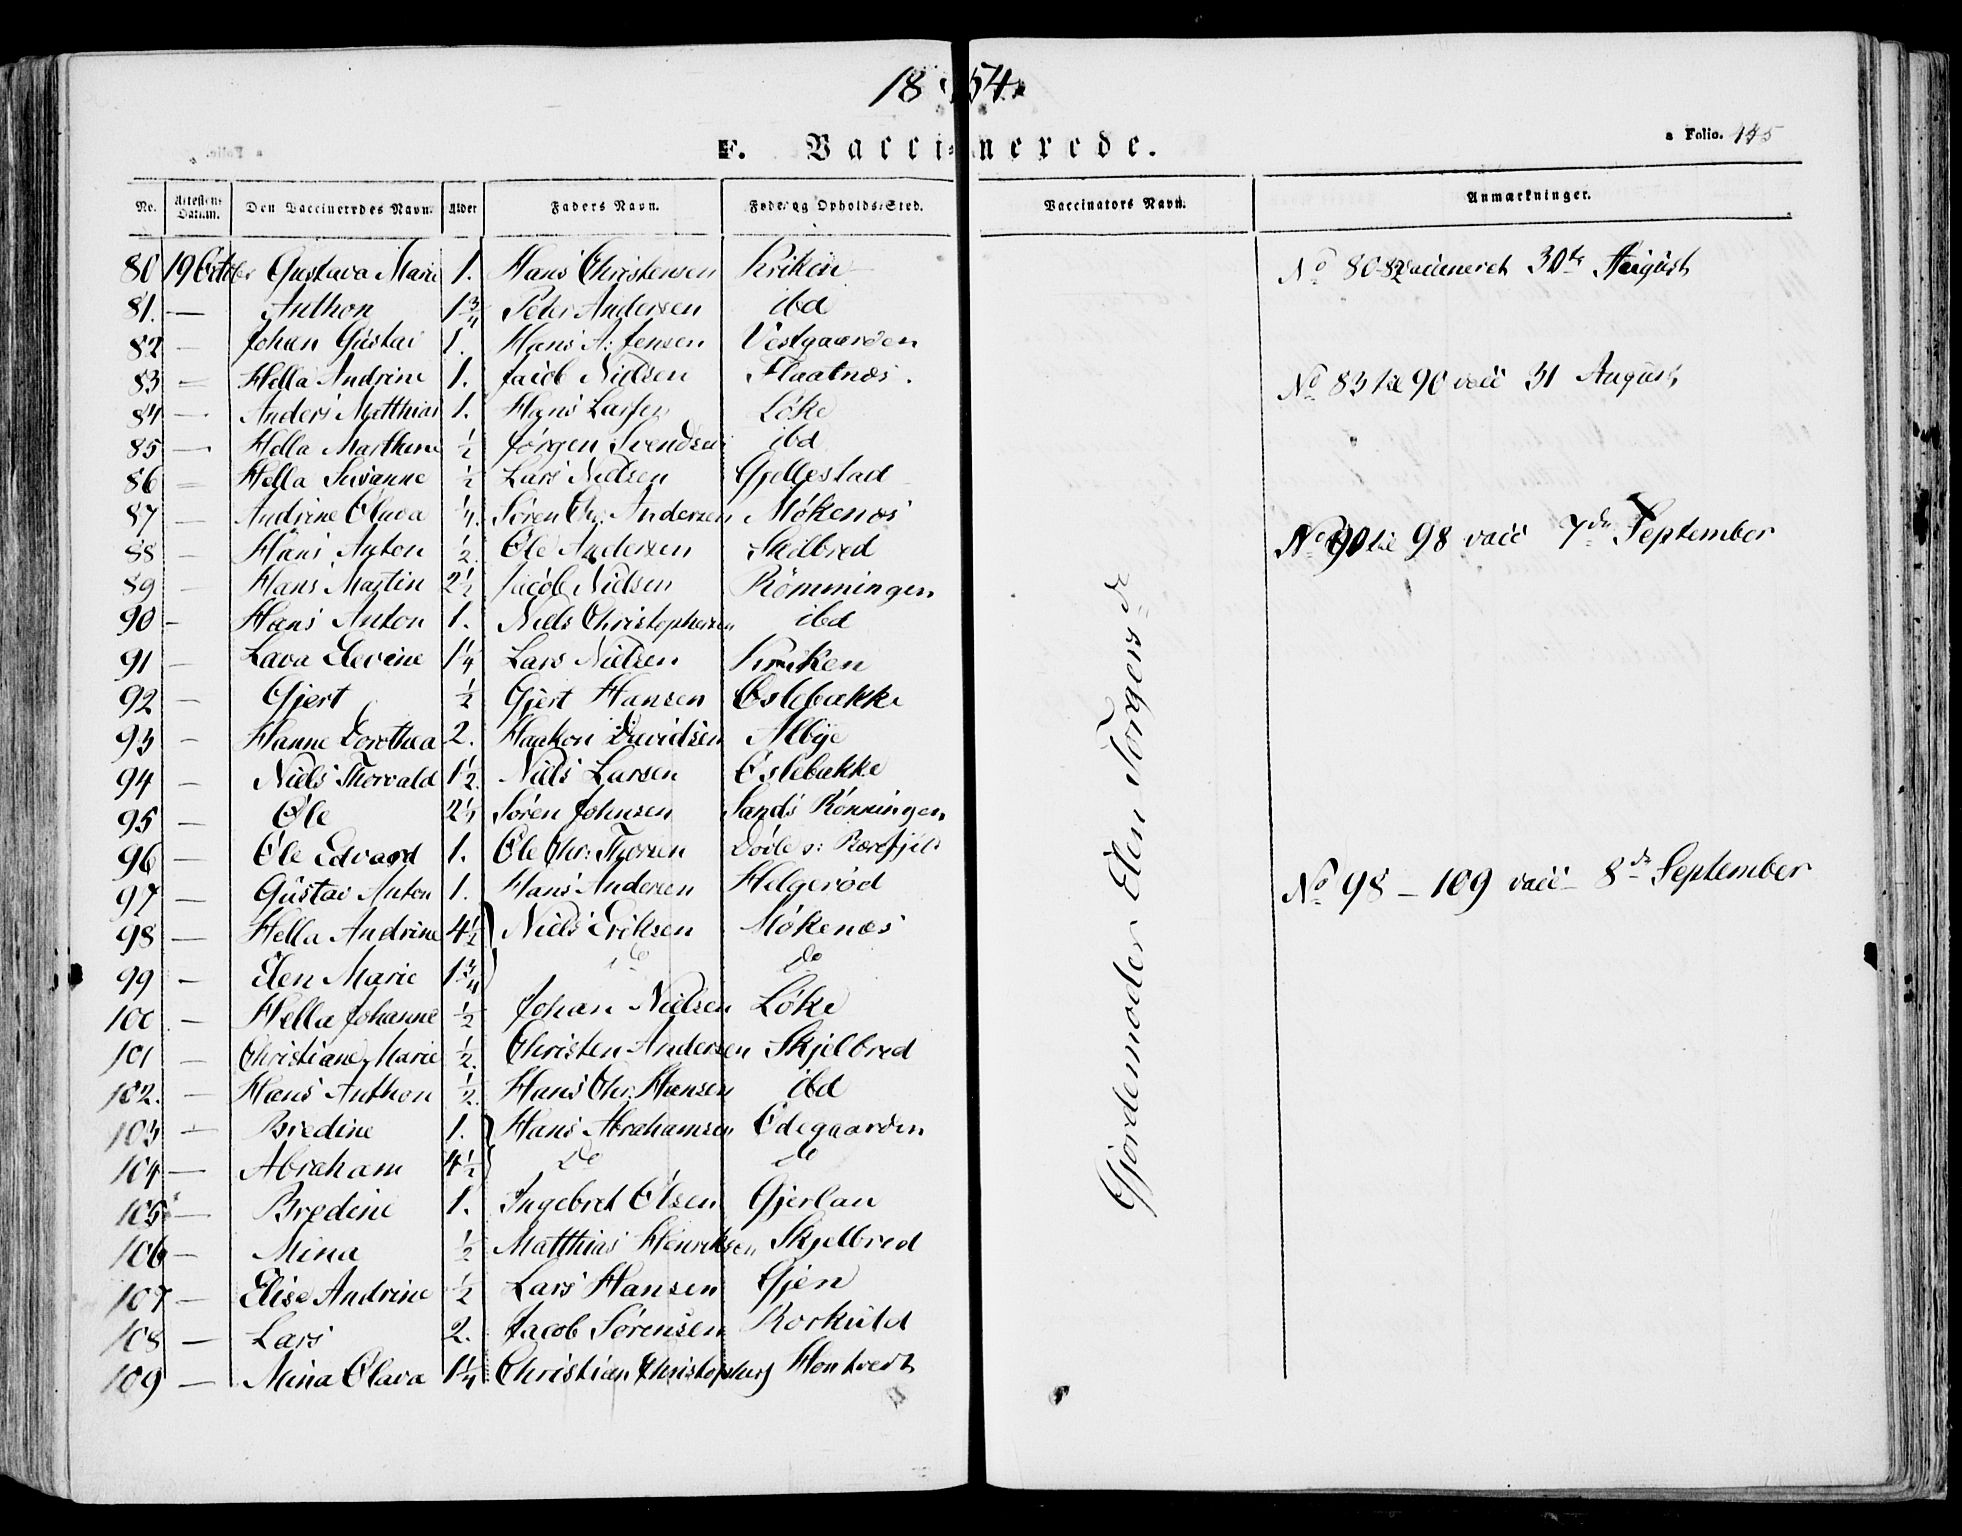 1854.
F. Vaccinerede.
a Folio. 145
No. Attestens Datum. Den Vaccineredes Navn. Alder Faders Navn. Føde- og Opholds-Sted. Vaccinators Navn. Anmærkninger.
80 19 October Gustava Marie 1. Hans Christensen Kriken No 80-82 vaccineret 30te August
81. — Anthon 1 3/4 Peter Andersen ibd
82 — Johan Gustav 1. Hans A: Jensen Vestgaarden
83 — Hella Andrine 1. Jacob Nielsen Flaatnæs. No 83 til 90 vacc 31 August
84 — Anders Matthias 1. Hans Larsen Løke
85 — Hella Marthine 1/2 Jørgen Svendsen ibd
86 — Hella Susanne 1/2 Lars Nielsen Gjellestad
87 — Andrine Olava 1/4. Søren Chr: Andersen Møkenæs No 90 til 98 vacc 7de September
88 — Hans Anton 1/2. Ole Andersen Skilbred
89 — Hans Martin 2 1/2 Jacob Nielsen Rømmingen
90 — Hans Anton 1. Niels Christophersen ibd
91 — Lava Elevine 1 1/4 Lars Nielsen Kriken
92 — Gjert 1/2 Gjert Hansen Oslebakke
93 — Hanne Dorothea 2. Haakon Davidsen Albye
94 — Niels Thorvald 1 1/2. Niels Larsen Oslebakke
95 — Ole 2 1/4 Søren Johnsen Sands Rønningen
96 — Ole Edvard 1. Ole Chr: Thorsen
97 — Gustav Anton 1. Hans Andersen Helgerød No 98 — 109 vacc 8de September
98 — Hella Andrine 4 1/2 Niels Eriksen Møkenæs
99 — Elen Marie 1 3/4 do do
100 — Hella Johanne 1/2 Johan Nielsen Løke
101 — Christiane Marie 1/2. Christen Andersen Skjelbred
102. — Hans Anthon 1/2. Hans Chr: Hansen ibd
103 — Bredine 1. Hans Abrahamsen Odegaarden
104 — Abraham 4 1/2 do do
105 — Bredine 1. Ingebret Olsen Gjerlau
106 — Mina 1/2 Matthias Henriksen Skjelbred
107 — Elise Andrine 1/2 Lars Hansen Gjen
108 — Lars 2. Jacob Sørensen
109 — Mina Olava 1 1/4 Christian Christophers
Gjordemoder Elen Torgersdr